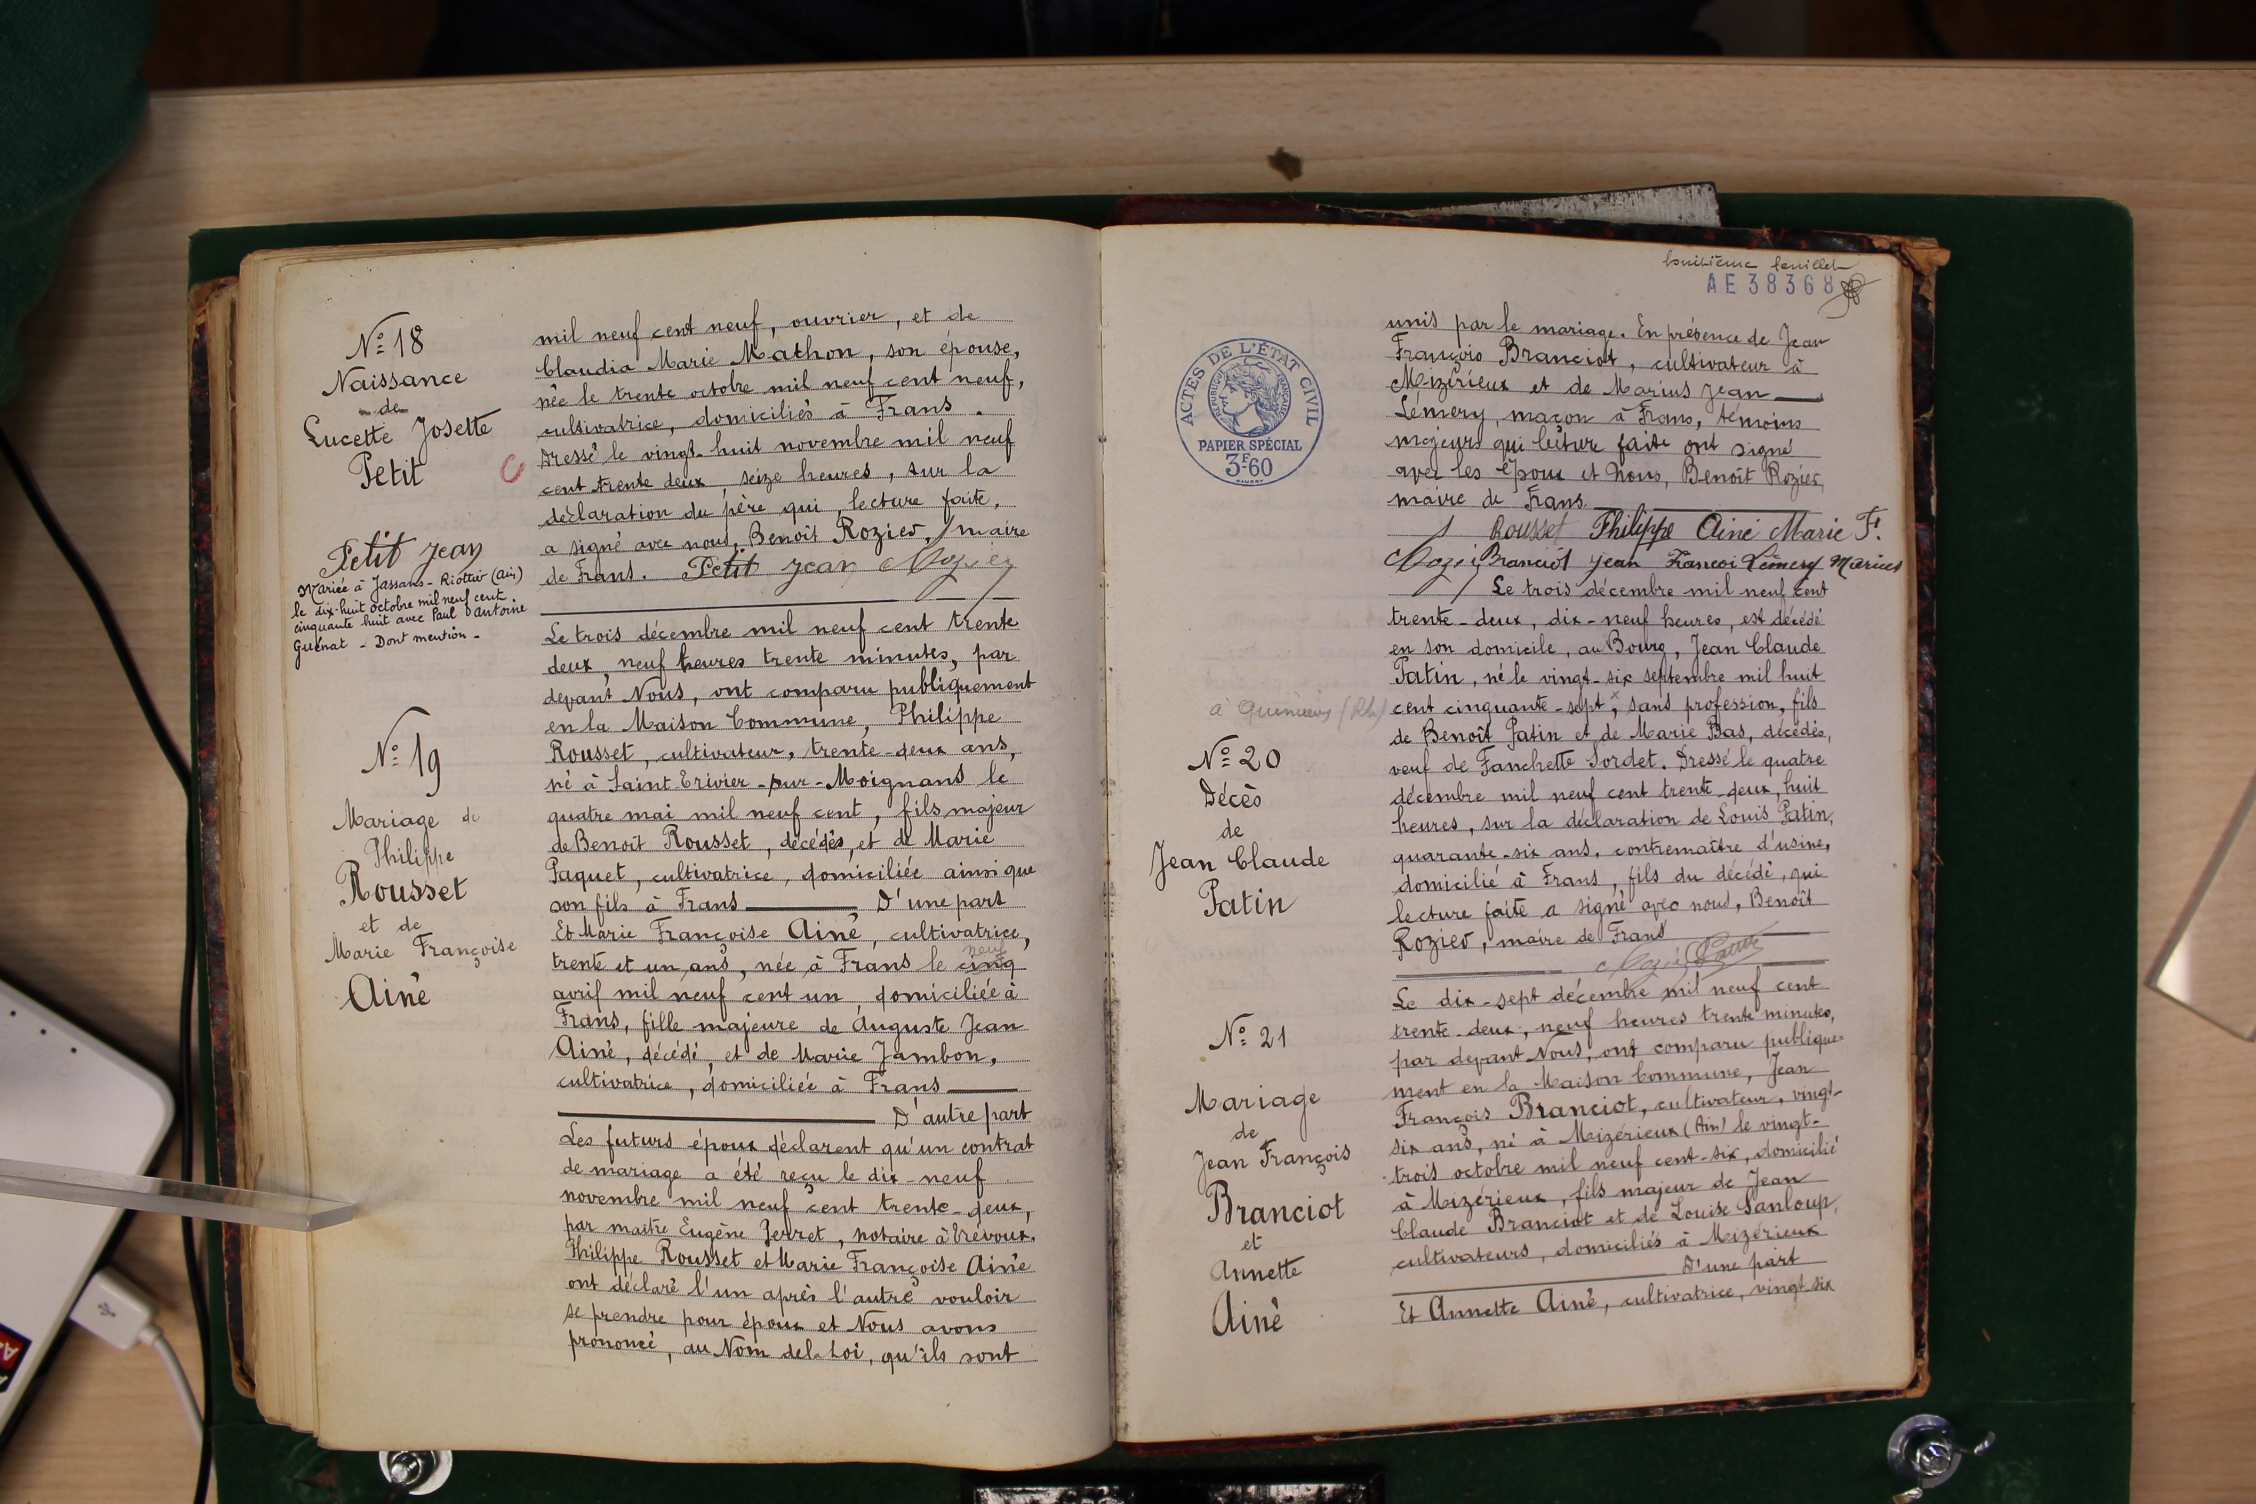 N° 18
Naissance
de
Lucette Josette
Petit
Petit Jean
Mariée à Jassans-Riottier (Ain)
le dix-huit octobre mil neuf cent
cinquante huit avec Paul Antoine
Guénat - Dont mention -
N° 19
Mariage de
Philippe
Rousset
et de
Marie Françoise
Ainé
mil neuf cent neuf, ouvrier, et de
Claudia Marie Mathon, son épouse,
née le trente octobre mil neuf cent neuf,
cultivatrice, domiciliés à Frans.
Dressé le vingt-huit novembre mil neuf
cent trente deux, seize heures, sur la
déclaration du père qui, lecture faite,
a signé avec nous, Benoît Rozier, maire
de Frans. Petit Jean Rozier
Le trois décembre mil neuf cent trente
deux, neuf heures trente minutes, par
devant Nous, ont comparu publiquement
en la Maison Commune, Philippe
Rousset, cultivateur, trente-deux ans,
né à Saint Trivier-sur-Moignans le
quatre mai mil neuf cent, fils majeur
de Benoît Rousset, décédés, et de Marie
Paquet, cultivatrice, domiciliée ainsi que
son fils à Frans D'une part
Et Marie Françoise Ainé, cultivatrice,
neuf
trente et un ans, née à Frans le cinq
avril mil neuf cent un, domiciliée à
Frans, fille majeure de Auguste Jean
Ainé, décédé, et de Marie Jambon,
cultivatrice, domiciliée à Frans
D'autre part
Les futurs époux déclarent qu'un contrat
de mariage a été reçu le dix-neuf
novembre mil neuf cent trente-deux,
par maître Eugène Perret, notaire à Trévoux.
Philippe Rousset et Marie Françoise Ainé
ont déclaré l'un après l'autre vouloir
se prendre pour époux et Nous avons
prononcé, au Nom de la Loi, qu'ils sont
huitième feuillet
AE 38368
ACTES DE L'ÉTAT CIVIL
RÉPUBLIQUE FRANÇAISE
PAPIER SPÉCIAL
3F60
unis par le mariage. En présence de Jean
François Branciot, cultivateur à
Mizérieux et de Marius Jean
Lémery, maçon à Frans, témoins
majeurs qui lecture faite ont signé
avec les époux et Nous, Benoît Rozier,
maire de Frans.
Rousset Philippe Ainé Marie F.
Rozier Branciot Jean Francoi Lémery Marius
Le trois décembre mil neuf cent
trente-deux, dix-neuf heures, est décédé
en son domicile, au Bourg, Jean Claude
Patin, né le vingt-six septembre mil huit
à Quincieux (Rh)
cent cinquante-sept, sans profession, fils
de Benoît Patin et de Marie Bas, décédés,
veuf de Fanchette Sordet. Dressé le quatre
décembre mil neuf cent trente-deux, huit
heures, sur la déclaration de Louis Patin,
quarante-six ans, contremaître d'usine,
domicilié à Frans, fils du décédé, qui
lecture faite a signé avec nous, Benoît
Rozier, maire de Frans
Rozier Patin
N° 20
Décès
de
Jean Claude
Patin
Le dix-sept décembre mil neuf cent
trente-deux, neuf heures trente minutes,
par devant Nous, ont comparu publique-
ment en la Maison Commune, Jean
François Branciot, cultivateur, vingt-
six ans, né à Mizérieux (Ain) le vingt-
trois octobre mil neuf cent-six, domicilié
à Mizérieux, fils majeur de Jean
Claude Branciot et de Louise Sanloup,
cultivateurs, domiciliés à Mizérieux
D'une part
Et Annette Ainé, cultivatrice, vingt-six
N° 21
Mariage
de
Jean François
Branciot
et
Annette
Ainé